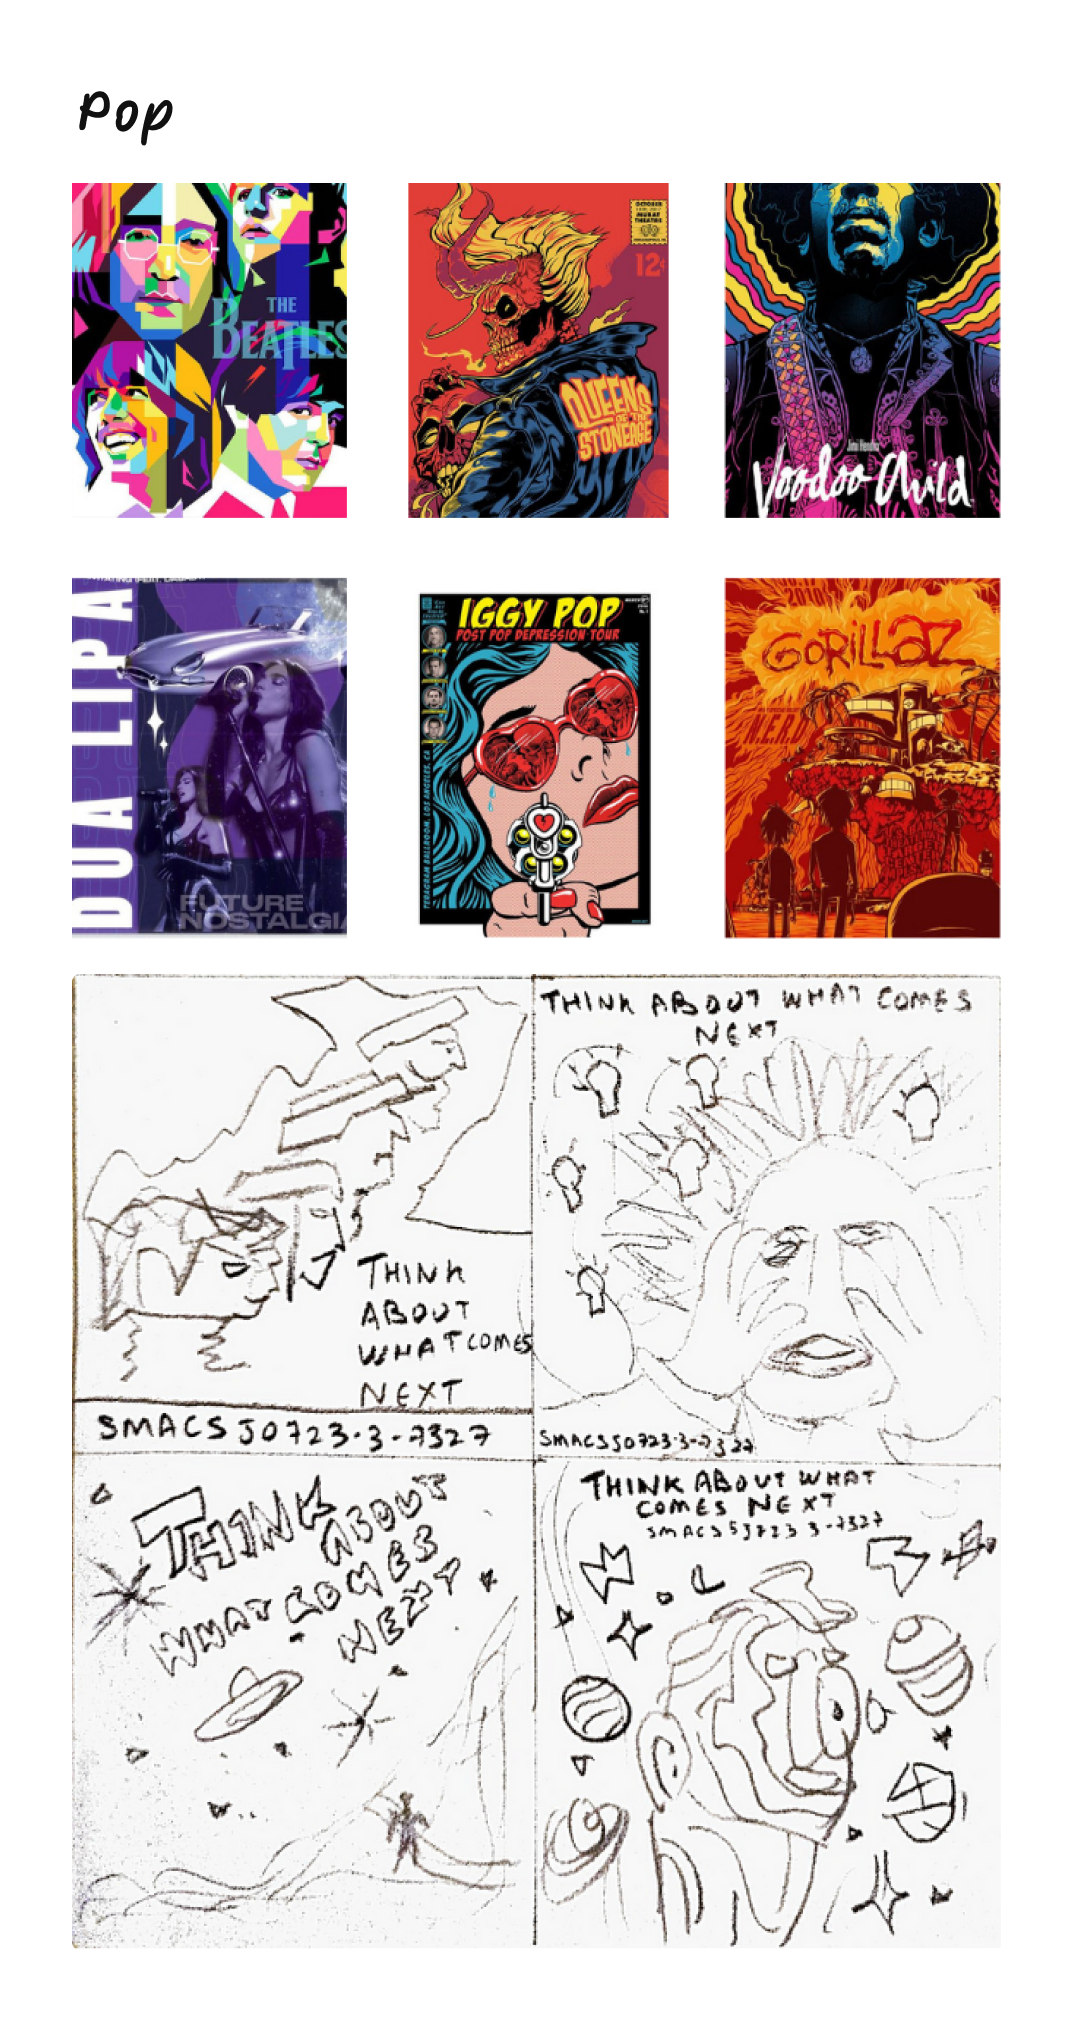 Pop
THE
BEATLES
OCTOBER
MURAT
THEATRE
12¢
QUEENS
OF THE
STONEAGE
Jimi Hendrix
Voodoo Child
DUA LIPA
FUTURE
NOSTALGIA
IGGY POP
POST POP DEPRESSION TOUR
TERAGRAM BALLROOM, LOS ANGELES, CA
GORILLAZ
N.E.R.D
THINK
ABOUT
WHAT COMES
NEXT
SMACS J0723.3-7327
THINK ABOUT WHAT COMES
NEXT
SMACSJ0723.3-7327
THINK
ABOUT
WHAT COMES
NEXT
THINK ABOUT WHAT
COMES NEXT
SMACSSJ723 3-7327